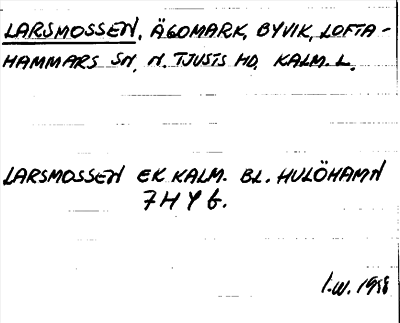 LARSMOSSEN, ÄGOMARK, BYVIK, LOFTA-
HAMMARS SN, N. TJUSTS HD, KALM. L.
LARSMOSSEN EK KALM. BL. HULÖHAMN
7 H Y G.
I.W.